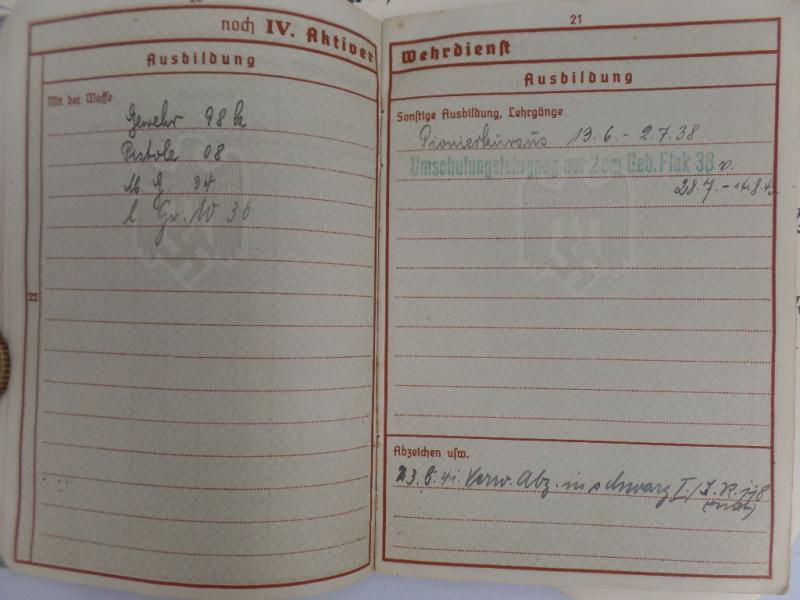 noch IV. Aktiver
Ausbildung
22
Mit der Waffe
Gewehr 98 k
Pistole 08
M. G. 34
l. Gr. W 36
21
Wehrdienst
Ausbildung
Sonstige Ausbildung, Lehrgänge
Pionierkursus 13.6. - 2.7.38
Umschulungslehrgang auf 2 cm Geb. Flak 38 v.
28.7. - 14.8.
Abzeichen usw.
23.8.41 Verw. Abz. in schwarz I./J.R.